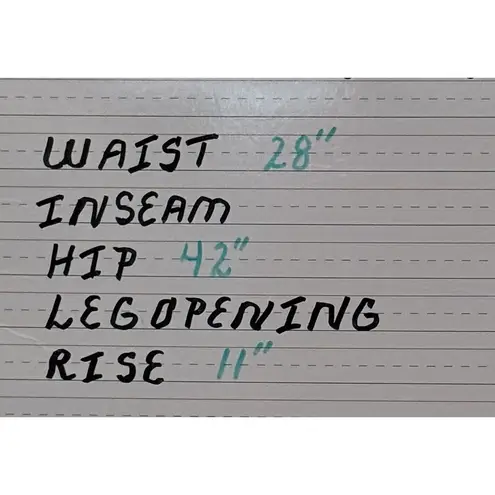 WAIST 28"
INSEAM
HIP 42"
LEG OPENING
RISE 11"